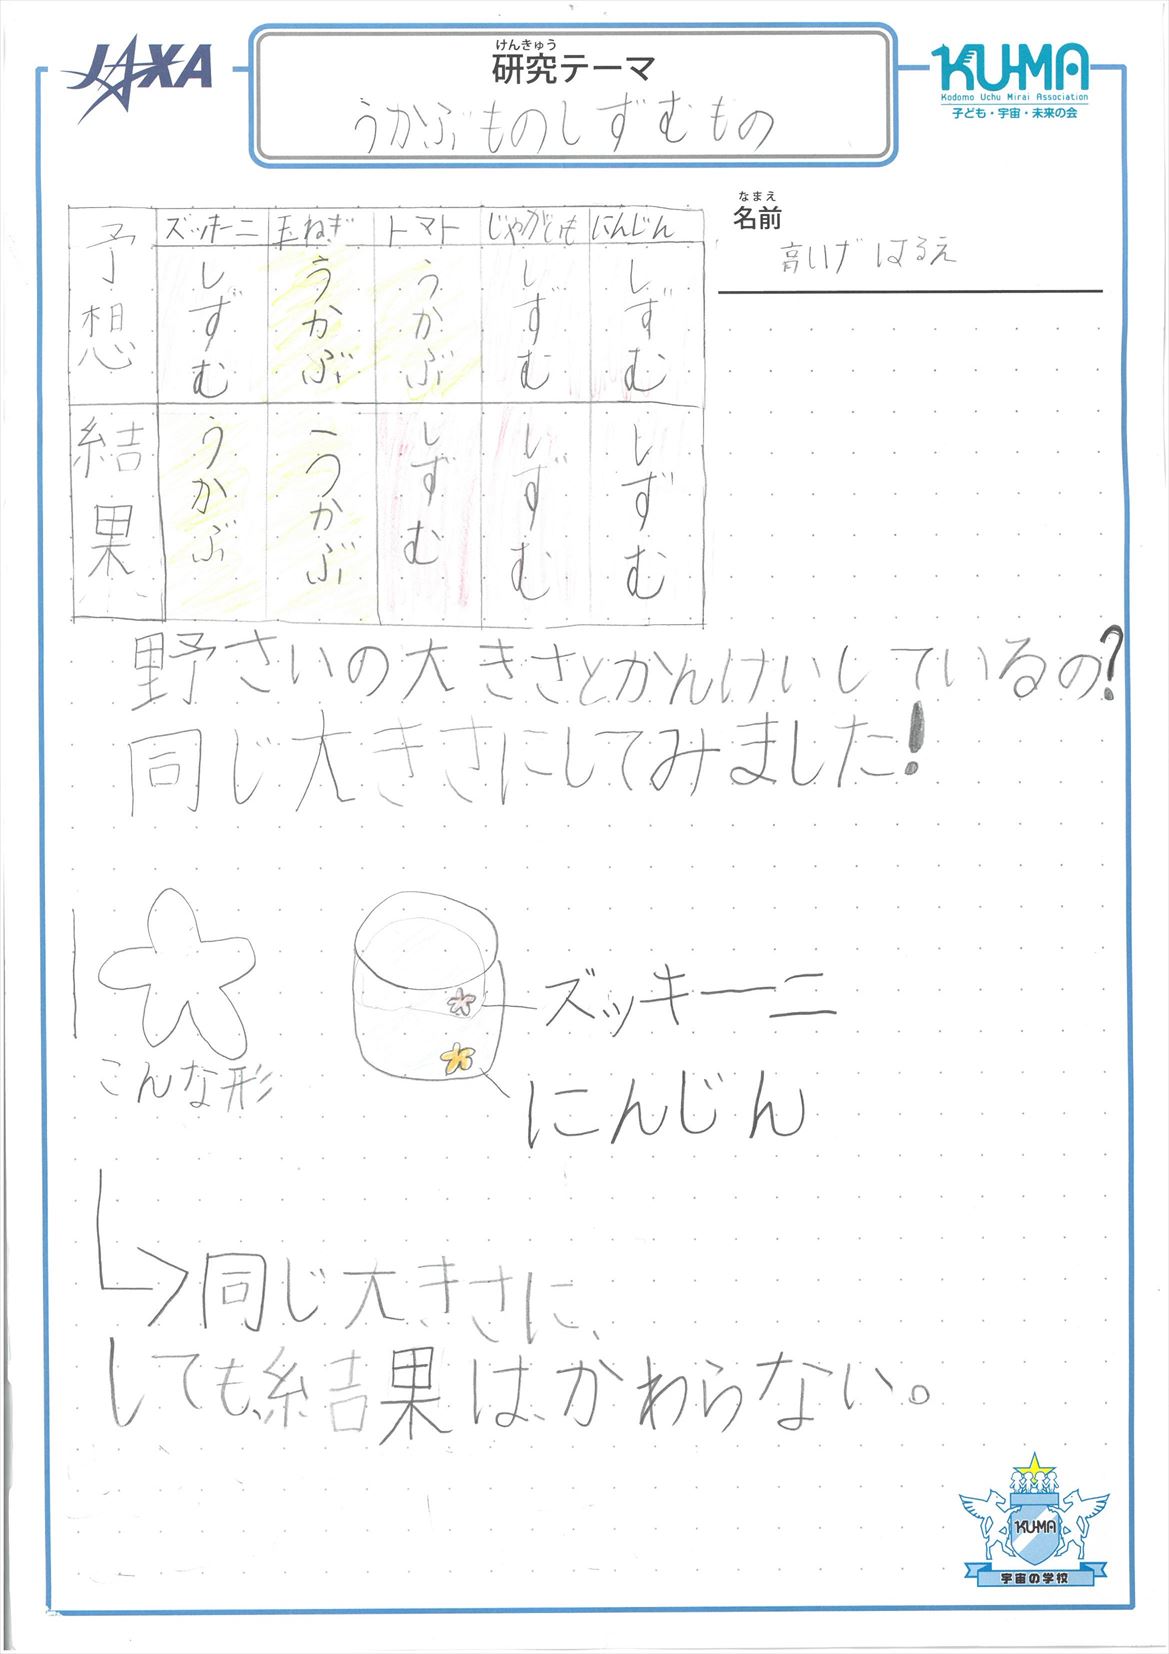 JAXA
けんきゅう
研究テーマ
うかぶものしずむもの
KU-MA
Kodomo Uchu Mirai Association
子ども・宇宙・未来の会
なまえ
名前
はるえ
予想 ズッキーニ 玉ねぎ トマト じゃがいも にんじん
しずむ うかぶ うかぶ しずむ しずむ
結果 うかぶ うかぶ しずむ しずむ しずむ
野さいの大きさとかんけいしているの?
同じ大きさにしてみました!
こんな形
ズッキーニ
にんじん
同じ大きさに、
しても、結果は、かわらない。
KU-MA
宇宙の学校